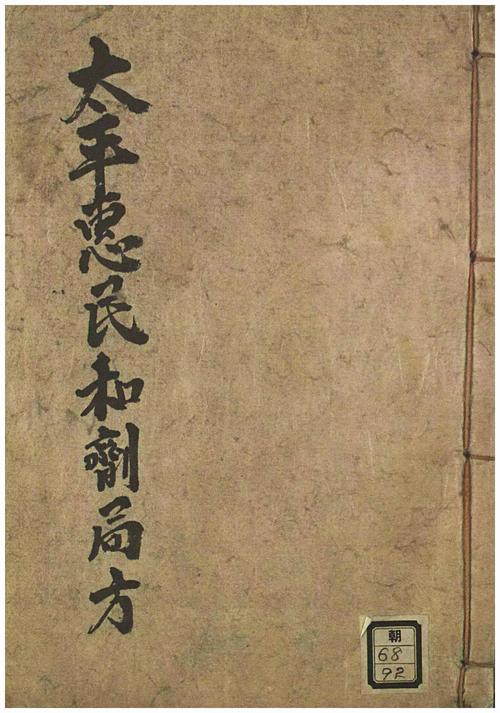 太平惠民和劑局方
朝
68
92